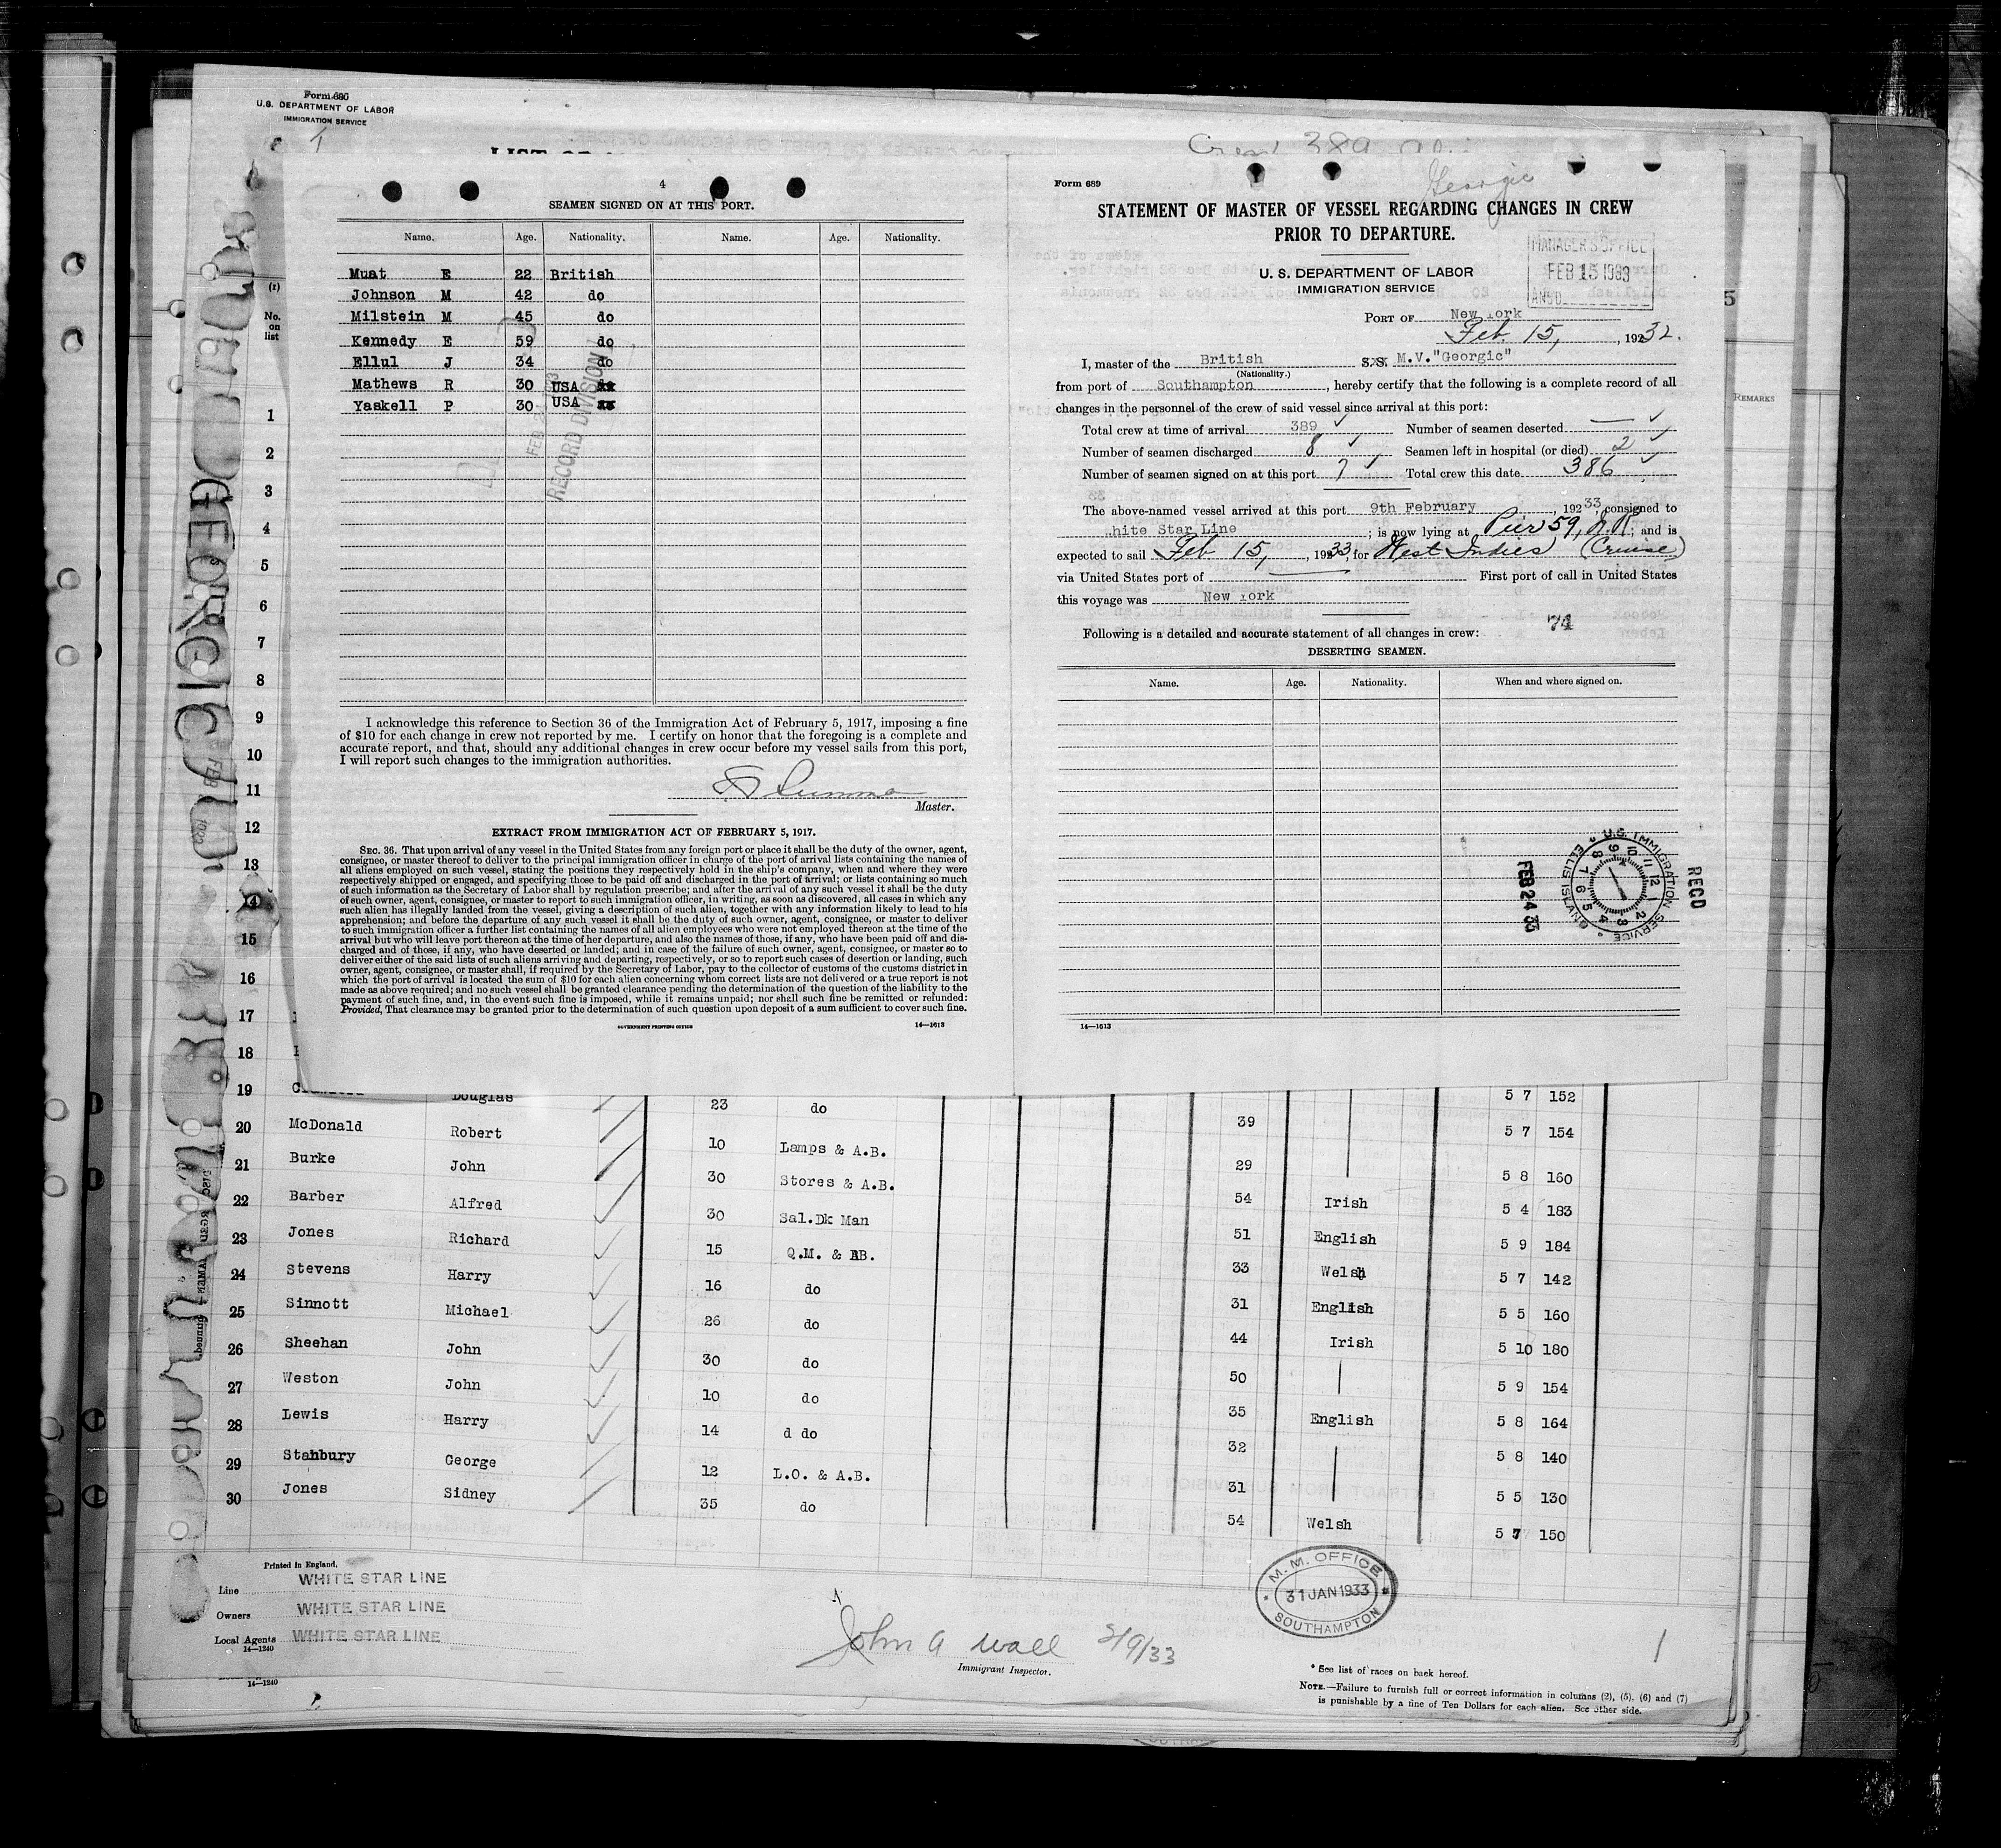 Form 680
U.S. DEPARTMENT OF LABOR
IMMIGRATION SERVICE
Crew 389
(1)
No.
on
list
1
2
3
4
5
6
7
8
9
10
11
12
13
14
15
16
17
18
GEORGIC
4
SEAMEN SIGNED ON AT THIS PORT.
Name. Age. Nationality. Name. Age. Nationality.
Muat E 22 British
Johnson M 42 do
Milstein M 45 do
Kennedy E 59 do
Ellul J 34 do
Mathews R 30 USA
Yaskell P 30 USA
RECORD DIVISION
FEB
I acknowledge this reference to Section 36 of the Immigration Act of February 5, 1917, imposing a fine
of $10 for each change in crew not reported by me. I certify on honor that the foregoing is a complete and
accurate report, and that, should any additional changes in crew occur before my vessel sails from this port,
I will report such changes to the immigration authorities.
Master.
EXTRACT FROM IMMIGRATION ACT OF FEBRUARY 5, 1917.
SEC. 36. That upon arrival of any vessel in the United States from any foreign port or place it shall be the duty of the owner, agent,
consignee, or master thereof to deliver to the principal immigration officer in charge of the port of arrival lists containing the names of
all aliens employed on such vessel, stating the positions they respectively hold in the ship's company, when and where they were
respectively shipped or engaged, and specifying those to be paid off and discharged in the port of arrival; or lists containing so much
of such information as the Secretary of Labor shall by regulation prescribe; and after the arrival of any such vessel it shall be the duty
of such owner, agent, consignee, or master to report to such immigration officer, in writing, as soon as discovered, all cases in which any
such alien has illegally landed from the vessel, giving a description of such alien, together with any information likely to lead to his
apprehension; and before the departure of any such vessel it shall be the duty of such owner, agent, consignee, or master to deliver
to such immigration officer a further list containing the names of all alien employees who were not employed thereon at the time of the
arrival but who will leave port thereon at the time of her departure, and also the names of those, if any, who have been paid off and dis-
charged and of those, if any, who have deserted or landed; and in case of the failure of such owner, agent, consignee, or master so to
deliver either of the said lists of such aliens arriving and departing, respectively, or so to report such cases of desertion or landing, such
owner, agent, consignee, or master shall, if required by the Secretary of Labor, pay to the collector of customs of the customs district in
which the port of arrival is located the sum of $10 for each alien concerning whom correct lists are not delivered or a true report is not
made as above required; and no such vessel shall be granted clearance pending the determination of the question of the liability to the
payment of such fine, and, in the event such fine is imposed, while it remains unpaid; nor shall such fine be remitted or refunded:
Provided, That clearance may be granted prior to the determination of such question upon deposit of a sum sufficient to cover such fine.
GOVERNMENT PRINTING OFFICE 14—1613
Form 689
Georgic
STATEMENT OF MASTER OF VESSEL REGARDING CHANGES IN CREW
PRIOR TO DEPARTURE.
U. S. DEPARTMENT OF LABOR
IMMIGRATION SERVICE
MANAGER'S OFFICE
FEB 15 1933
ANSD
PORT OF New York
Feb. 15, , 1932.
I, master of the British S.S. M.V."Georgic"
(Nationality.)
from port of Southampton , hereby certify that the following is a complete record of all
changes in the personnel of the crew of said vessel since arrival at this port:
Total crew at time of arrival 389 Number of seamen deserted —
Number of seamen discharged 8 Seamen left in hospital (or died) 2
Number of seamen signed on at this port 7 Total crew this date 386
The above-named vessel arrived at this port 9th February , 192 33, consigned to
hite Star Line ; is now lying at Pier 59, N.R. ; and is
expected to sail Feb 15, , 1933, for West Indies (Cruise)
via United States port of — First port of call in United States
this voyage was New York
Following is a detailed and accurate statement of all changes in crew: 74
DESERTING SEAMEN.
Name. Age. Nationality. When and where signed on.
U.S. IMMIGRATION SERVICE
ELLIS ISLAND
FEB 24 33
RECD
14—1613
REMARKS
5
19 Douglas 23 do 5 7 152
20 McDonald Robert 10 Lamps & A.B. 39 5 7 154
21 Burke John 30 Stores & A.B. 29 5 8 160
22 Barber Alfred 30 Sal.Dk Man 54 Irish 5 4 183
23 Jones Richard 15 Q.M. & AB. 51 English 5 9 184
24 Stevens Harry 16 do 33 Welsh 5 7 142
25 Sinnott Michael 26 do 31 English 5 5 160
26 Sheehan John 30 do 44 Irish 5 10 180
27 Weston John 10 do 50 5 9 154
28 Lewis Harry 14 d do 35 English 5 8 164
29 Stanbury George 12 L.O. & A.B. 32 5 8 140
30 Jones Sidney 35 do 31 5 5 130
54 Welsh 5 7 150
Printed in England.
Line WHITE STAR LINE
Owners WHITE STAR LINE
Local Agents WHITE STAR LINE
14—1240
14—1240
John A Wall 2/9/33
Immigrant Inspector.
M. M. OFFICE
31 JAN 1933
SOUTHAMPTON
1
* See list of races on back hereof.
NOTE.—Failure to furnish full or correct information in columns (2), (5), (6) and (7)
is punishable by a fine of Ten Dollars for each alien. See other side.